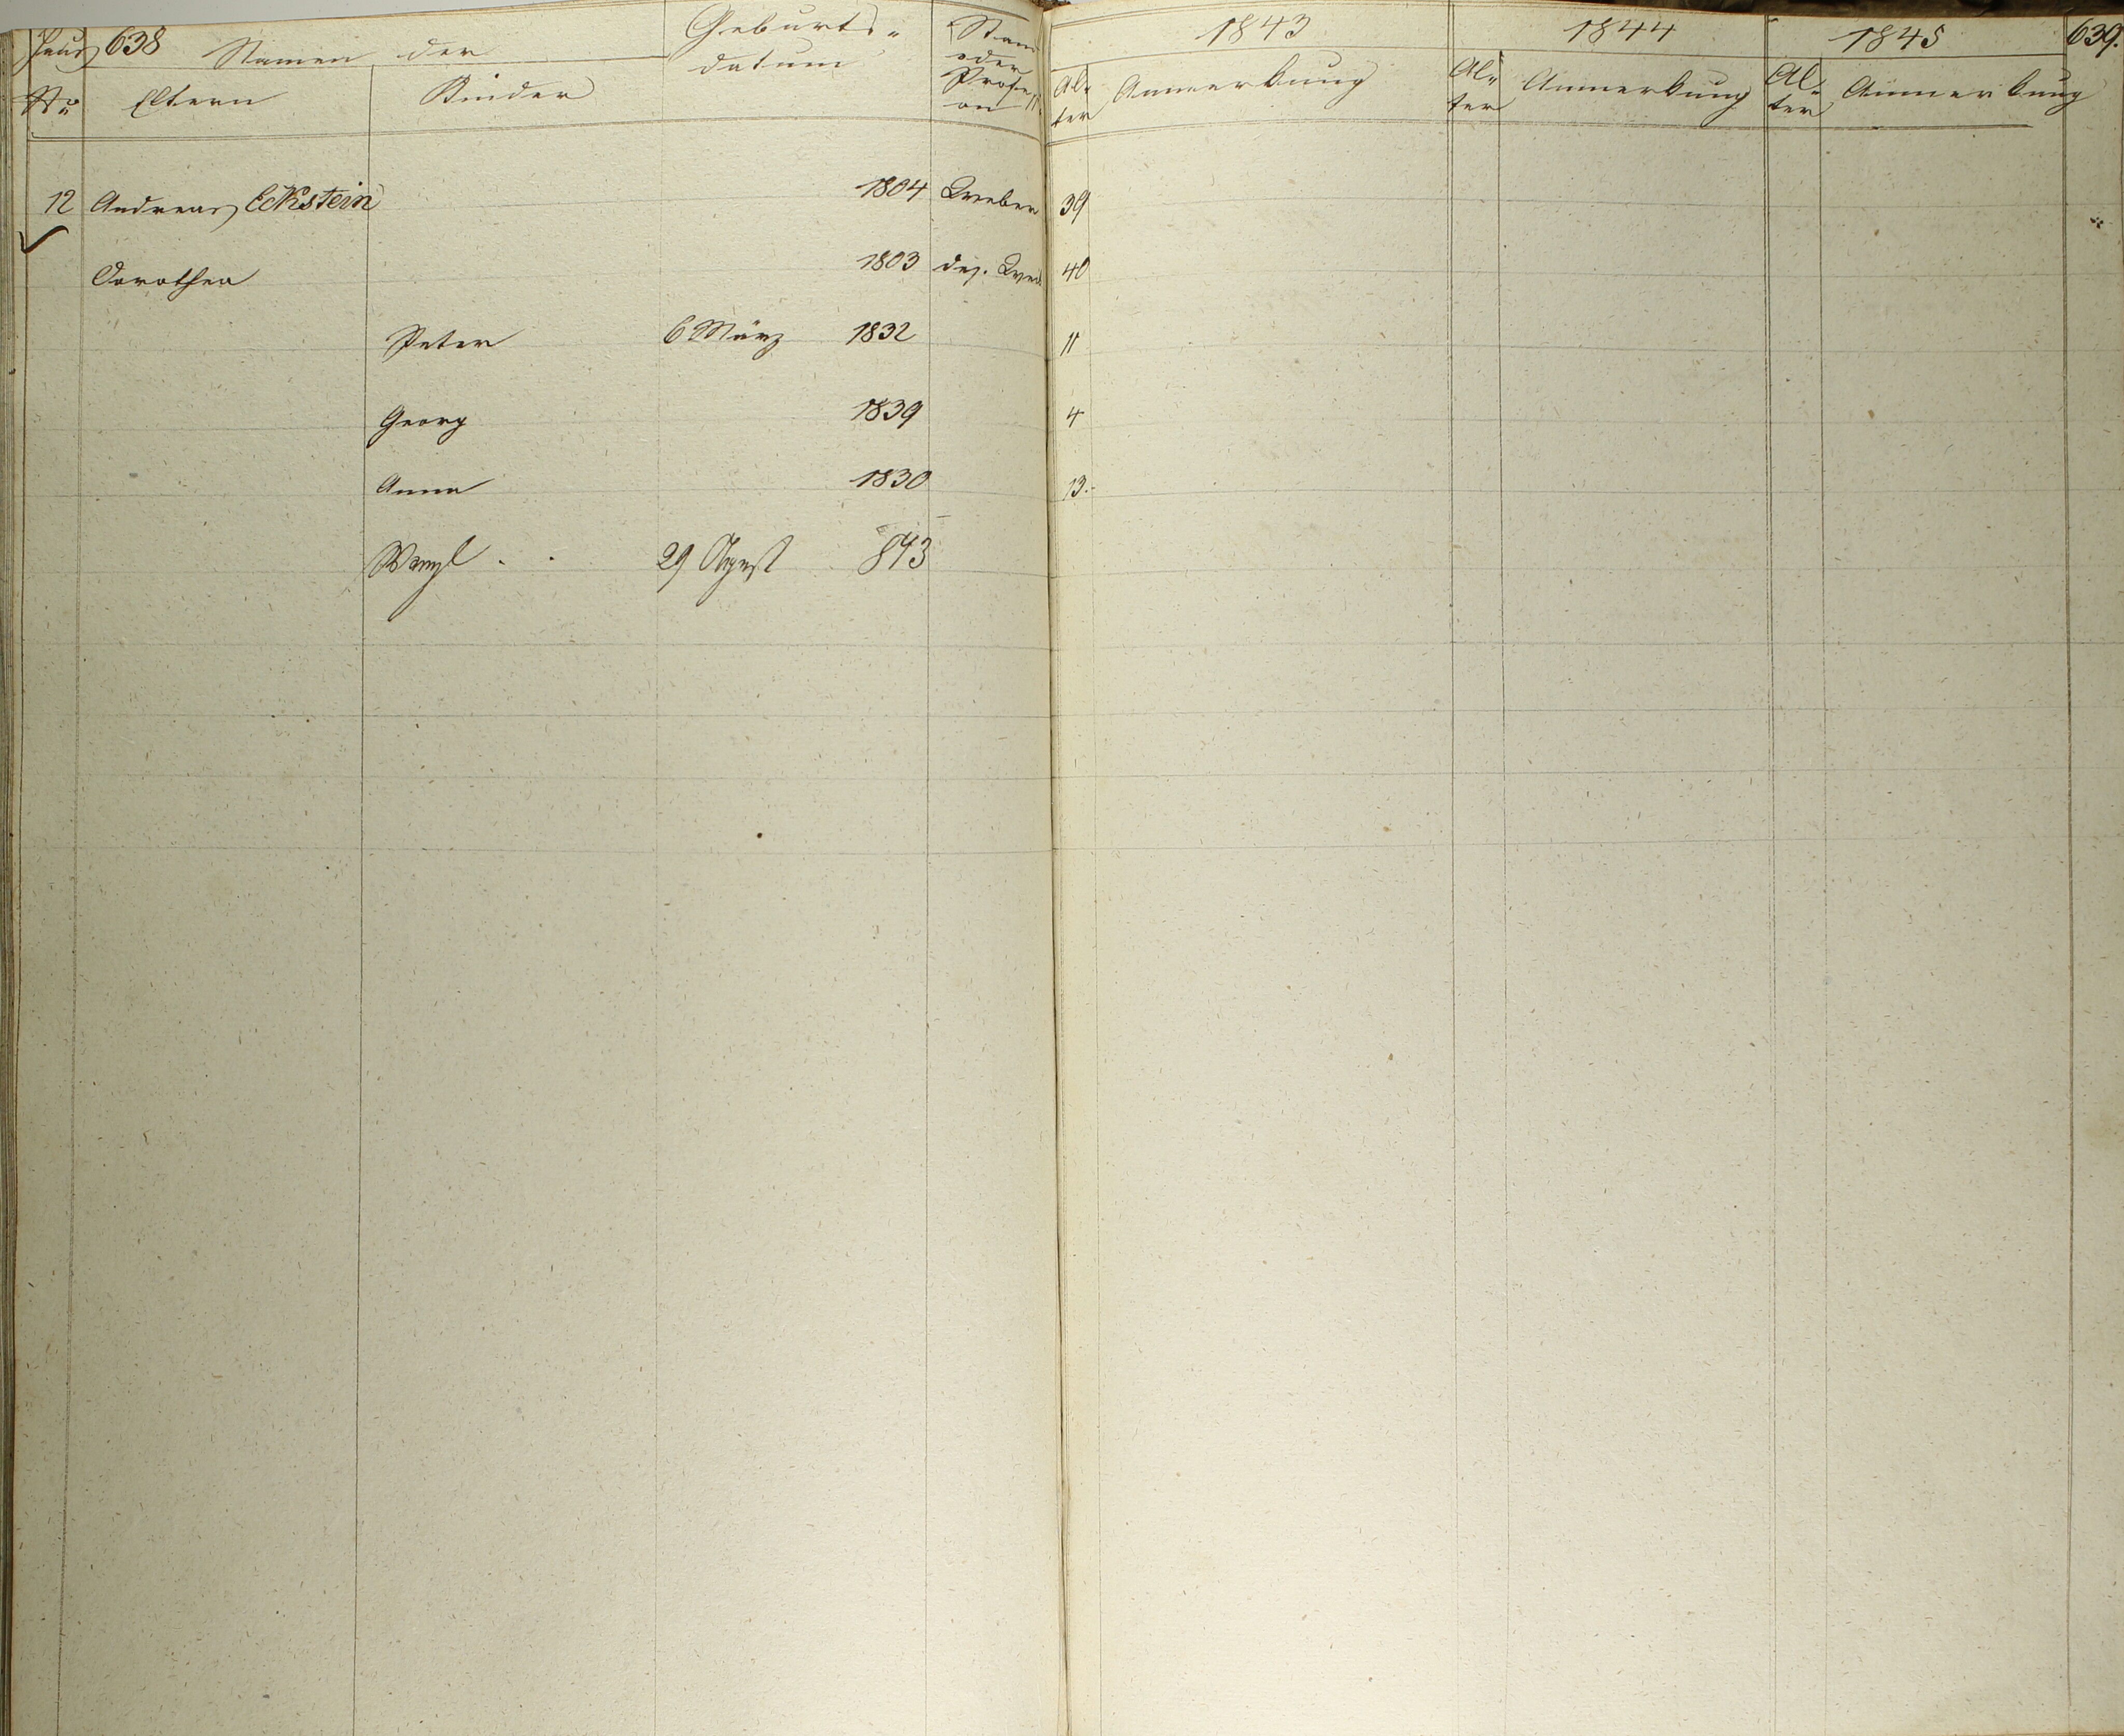 Haus 638 Namen der Geburts- Stand 1843 1844 1845 639.
No Eltern Kinder datum oder Profession Alter Anmerkung Alter Anmerkung Alter Anmerkung
12 Andreas Eckstein 1804 Weber 39
Dorothea 1803 des. 40
Peter 6 März 1832 11
Georg 1839 4
Anna 1830 13.
Wenzl 29 August 843